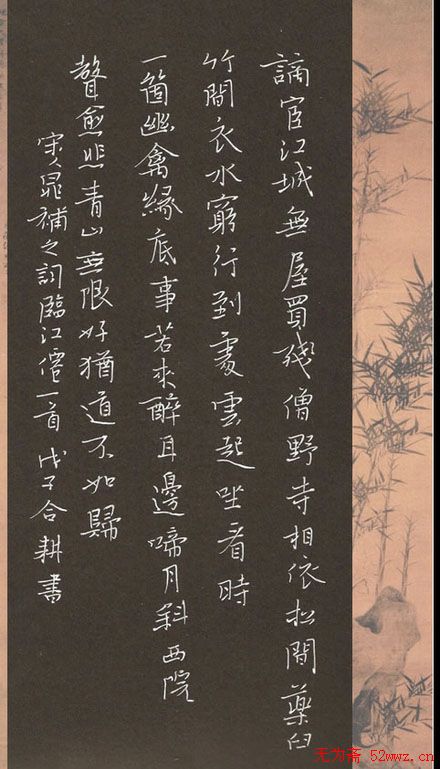 謫宦江城無屋買殘僧野寺相依松間藥臼
竹間衣水窮行到處雲起坐看時
一箇幽禽緣底事苦來醉耳邊啼月斜西院
聲愈悲青山無限好猶道不如歸
宋人晁補之詞臨江僊一首 戊子合耕書
无为斋 52wwz.cn